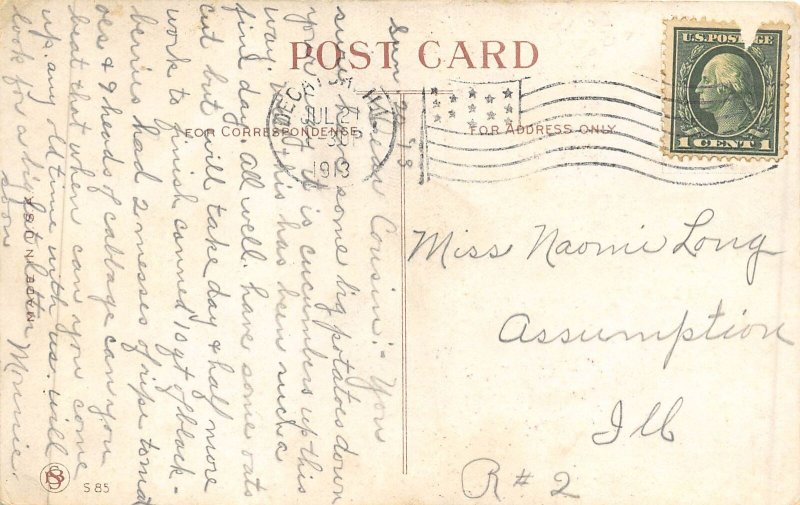 POST CARD
FOR CORRESPONDENCE
FOR ADDRESS ONLY
U.S. POSTAGE
1 CENT 1
DECATUR, ILL.
JUL 21
1913
Sun 20 '13
Dear Cousin:- You
sure have some big potatoes down
your it is cucumbers up this
way. this has been such a
fine day. all well. have some oats
cut but will take day & half more
work to finish canned 10 qt of black-
berries had 2 messes of ripe tomat
oes & 9 heads of cabbage can you
beat that when can you come
up. any old time with us. will
look for a big letter
soon Monnie.
Miss Naomi Long
Assumption
Ill
R#2
S 85